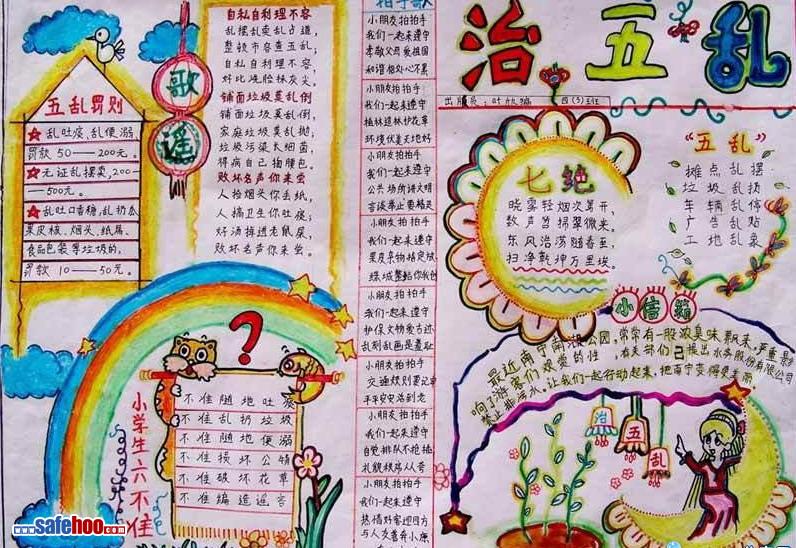 治五乱
出版员：
四(5)班
五乱罚则
乱吐痰、乱便溺，
罚款50——200元。
无证乱摆卖，200
——500元。
乱吐口香糖，乱扔瓜
果皮核、烟头、纸屑、
食品包装等垃圾的，
罚款10——50元。
歌谣
自私自利不容
乱摆乱卖乱占道，
整顿市容查五乱；
自私自利不容，
好比烧脸抹灰尖。
铺面垃圾莫乱倒
铺面垃圾莫乱倒，
家庭垃圾莫乱抛，
垃圾污染长细菌，
得病自己掏腰包。
败坏名声你来尝
人捡烟头你丢纸，
人搞卫生你吐痰；
好汤掉进老鼠屎，
败坏名声你来尝。
拍手歌
小朋友拍拍手
我们一起来遵守
孝敬父母爱祖国
和谐相处心不累
小朋友拍拍手
我们一起来遵守
植林造林护花草
环境优美天地好
小朋友拍拍手
我们一起来遵守
公共场所讲文明
言谈举止要端庄
小朋友拍拍手
我们一起来遵守
果皮杂物指定放
绿城整洁你我创
小朋友拍拍手
我们一起来遵守
护保文物爱古迹
乱刻乱画是羞耻
小朋友拍拍手
交通规则要记牢
平平安安活到老
小朋友拍拍手
我们一起来遵守
自爱排队不抢插
礼貌秩序从否
小朋友拍拍手
我们一起来遵守
热情好客迎四方
与人友善奔小康
七绝
晓雾轻烟次第开，
数声笤帚翠微来，
东风浩荡随春意，
扫净乾坤万里埃。
“五乱”
摊点乱摆
垃圾乱扔
车辆乱停
广告乱贴
工地乱象
小信箱
最近南宁南湖公园，常常有一股浓臭味飘来，严重影
响了游客们欢赏的性，有关部们已提出水务股份有限公司
禁止排污水，让我们一起行动起来，把南宁变得更美丽
治
五
乱
小学生六不准
?
不准随地吐痰
不准乱扔垃圾
不准随地便溺
不准损坏公物
不准破坏花草
不准编造谣言
www.safehoo.com